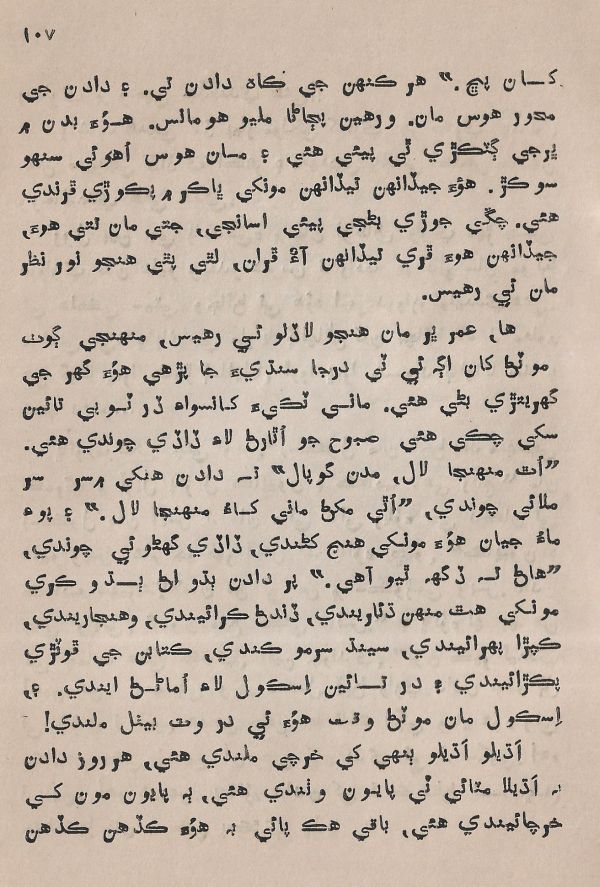 ١٠٧
کان پڇ.” هر ڪنهن جي ڳاٿ دادن تي. ۽ دادن جي
محور هوس مان. ورهين پڄاڻا مليو هومانس. هوُءَ بدن ۾
ڀرجي ڳٽڪڙي ٿي پيئي هئي ۽ مان هوس اُهوئي سنهو
سوڪڙ. هوُءَ جيڏانهن تيڏانهن مونکي ڀاڪر ۾ پڪوڙي ڦرندي
هئي. چڱي جوڙي بڻجي پيئي اسانجي، جتي مان نٿي هوءَ،
جيڏانهن هوءَ ڦري تيڏانهن آءٌ ڦران، لٿي پٿي هنجو نور نظر
مان ئي رهيس.
ها، عمر ڀر مان هنجو لاڏلو ئي رهيس، منهنجي ڳوٺ
موٽڻ کان اڳ ئي ٽي درجا سنڌيءَ جا پڙهي هوُءَ گهر جي
گهرينڙي بڻي هئي. ماني ٽڪيءَ کانسواءِ ڏر ٽوبي ٽائين
سکي چڪي هئي صبوح جو اُٿارڻ لاءِ ڏاڏي چوندي هئي.
“اُٿ منهنجا لال، مدن گوپال” ته دادن هنکي ۾ سر سر
ملائي چوندي، “اُٿي مکڻ ماني کاءُ منهنجا لال.” ۽ پوءِ
ماءُ جيان هوُءَ مونکي هنج کڻندي، ڏاڏي گهڻو ئي چوندي،
“هاڻ ته ڏگهہ ٿيو آهي.” پر دادن ٻڌو اڻ ٻڌو ڪري
مونکي هٿ منهن ڌئاريندي، ڏندڻ ڪرائيندي، وهنجاريندي،
ڪپڙا پهرائيندي، سينڌ سرمو ڪندي، ڪتابن جي ڦوٽڙي
پڪڙائيندي ۽ در تائين اِسڪول لاءِ اُماڻڻ ايندي. ۽،
اِسڪول مان موٽڻ وقت هوُءَ ئي در وٽ بيٺل ملندي!
اَڌيلو اَڌيلو ٻنهي کي خرچي ملندي هئي، هر روز دادن
ٻه اَڌيلا مٽائي ٽي پايون وٺندي هئي، ٻه پايون مون کي
خرچائيندي هئي، باقي هڪ پائي به هوُءَ ڪڏهن ڪڏهن